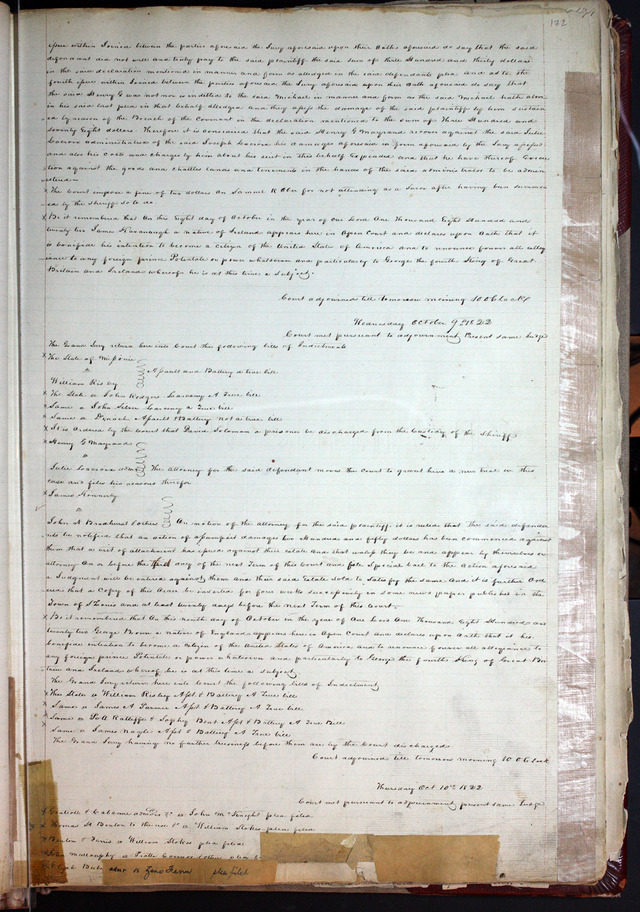 122
issue within Joined between the parties aforesaid the Jury aforesaid upon their Oaths aforesaid do say that the said
defendant did not well and truly pay to the said plaintiff the said sum of three Hundred and thirty dollars
in the said declaration mentioned in manner and form as alledged in the said defendants plea And as to the
fourth issue within Joined between the parties aforesaid the Jury aforesaid upon their Oath aforesaid do say that
the said Henry G was not nor is indebted to the said Michael in manner and form as the said Michael hath alone
in his said last plea in that behalf alledged And they assess the damage of the said plaintiff by him sustain
ed by reason of the Breach of the Covenant in the declaration mentioned to the sum of Three Hundred and
Seventy Eight dollars. Therefore it is considered that the said Henry G Maynard recover against the said Julie
administratrix of the said Joseph his damages aforesaid in form aforesaid by the Jury assessed
and also his Costs and charges by him about his suit in this behalf Expended and that he have thereof Execu
tion against the goods and chattles lands and tenements in the hands of the said administratrix to be admin
istered
x The Court impose a fine of two dollars on Samuel R Ober for not attending as a Juror after having been summon
ed by the Sheriff so to do.
x Be it remembered that On this Eight day of October in the year of our Lord One Thousand Eight Hundred and
twenty two James Kavanaugh a native of Ireland appears here in Open Court and declares upon Oath that it
is bonafide his intention to become a citizen of the United States of America and to renounce forever all allegi
ance to any foreign prince Potentate or power whatsoever and particularly to George the fourth King of Great
Britain and Ireland whereof he is at this time a Subject.
Court adjourned till tomorrow morning 10 OClock
Wednesday October 9th 1822
Court met pursuant to adjournment Present same Judge
The Grand Jury return here into Court the following bills of Indictment
x The State of Missouri
vs Assault and Battery a true bill
William Risby
x The State vs John Rodgers Larceny A True bill
x Same vs John Larceny a True bill
x Same vs Assault & Battery not a true bill
x It is Ordered by the Court that David Solomon a prisoner be discharged from the Custody of the Sheriff
x Henry G Maynard
vs
Julie admx The attorney for the said defendant moves the Court to grant him a new trial in this
case and files his reasons therefor
x James Kennerly
vs
John A Broadhurst & others On motion of the attorney for the said plaintiff it is ruled that The said defendan
ts be notified that an action of assumpsit damages two Hundred and fifty dollars has been commenced against
them that a writ of attachment has issued against their estate And that unless they be and appear by themselves or
attorney on or before the third day of the next Term of this Court and file Special bail to the Action aforesaid
a Judgment will be entered against them And their said Estate sold to Satisfy the same. And it is further Ord
ered that a Copy of this Order be inserted for four weeks successively in some news paper published in the
Town of St Louis and at least twenty days before the next Term of this Court.
x Be it remembered that On this ninth day of October in the year of Our Lord One Thousand Eight Hundred and
twenty two George Brown a native of England appears here in Open Court and declares upon Oath that it his
bonafide intention to become a citizen of the United States of America and to renounce forever all allegiance to
any foreign prince Potentate or power whatsoever and particularly to George the fourth King of Great Bri
tain and Ireland whereof he is at this time a Subject.
The Grand Jury return here into Court the following bills of Indictment
x The State vs William Risby Asst & Battery A True bill
x Same vs James A Asst & Battery A True bill
x Same vs Ratliffe & Bent Asst & Battery A True Bill
Same vs James Nagle Asst & Battery A True bill
The Grand Jury having no further business before them are by the Court discharged.
Court adjourned till tomorrow morning 10 OClock
Thursday Oct 10th 1822
Court met pursuant to adjournment present same Judge
x & Cabanne admrs &c vs John McKnight plea filed
x Thomas H Benton to the use &c vs William Stokes plea filed
x Benton & vs William Stokes plea filed
x John Mullanphy vs & others plea
x Bates vs plea filed